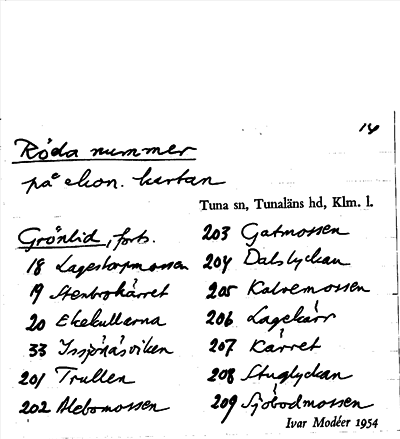 14
Röda nummer
på ekon. kartan
Tuna sn, Tunaläns hd, Klm. l.
Grönlid, forts.
18 Lagestorpmossen
19 Stenbrokärret
20 Ekekullarna
33 Issjönäsviken
201 Trullen
202 Alebomossen
203 Gatmossen
204 Dalslyckan
205 Kalvemossen
206 Lagekärr
207 Kärret
208 Stuglyckan
209 Sjöbodmossen
Ivar Modéer 1954